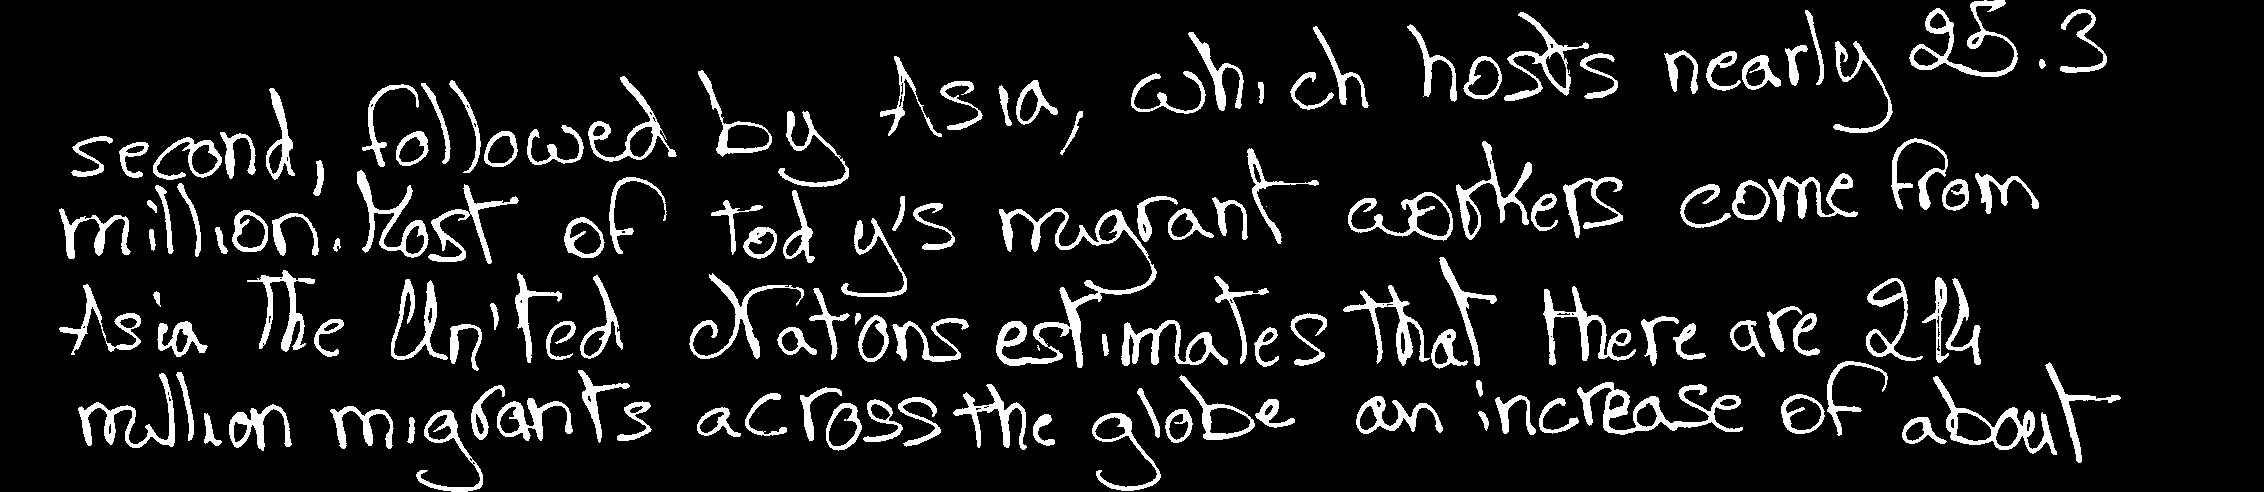 second, followed by Asia, which hosts nearly 25.3
million. Most of tody's migrant workers come from
Asia The United Nations estimates that there are 214
million migrants across the globe an increase of about